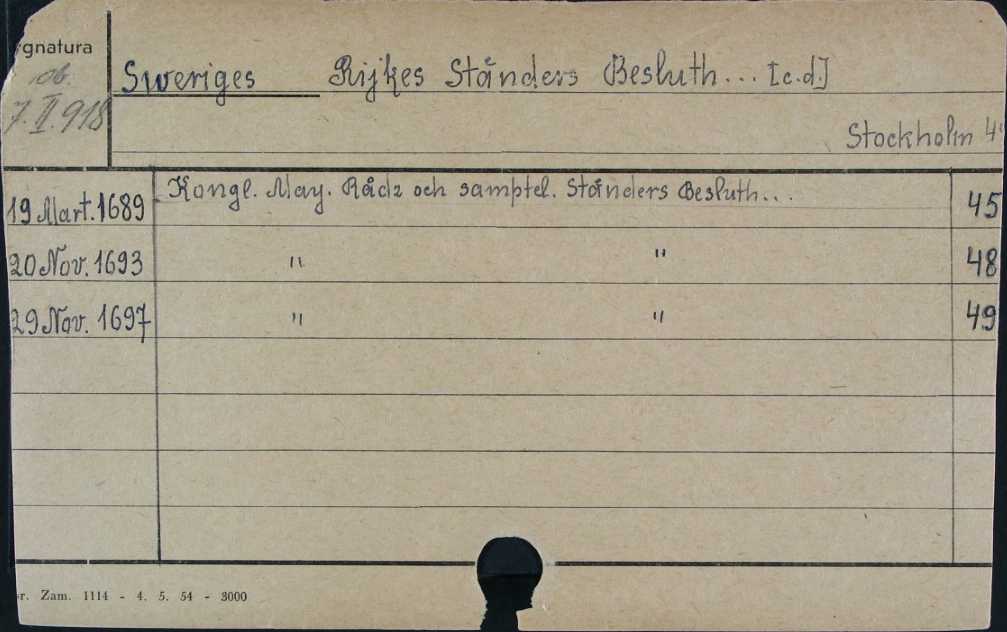 gnatura
ob.
7.II.918
Sweriges Rijkes Ständers Besluth... [c.d.]
Stockholm 4°
19 Mart. 1689 Kongl. May. Rådz och samptel. Ständers Besluth... 45
20 Nov. 1693 " " 48
29 Nov. 1697 " " 49
r. Zam. 1114 - 4. 5. 54 - 3000